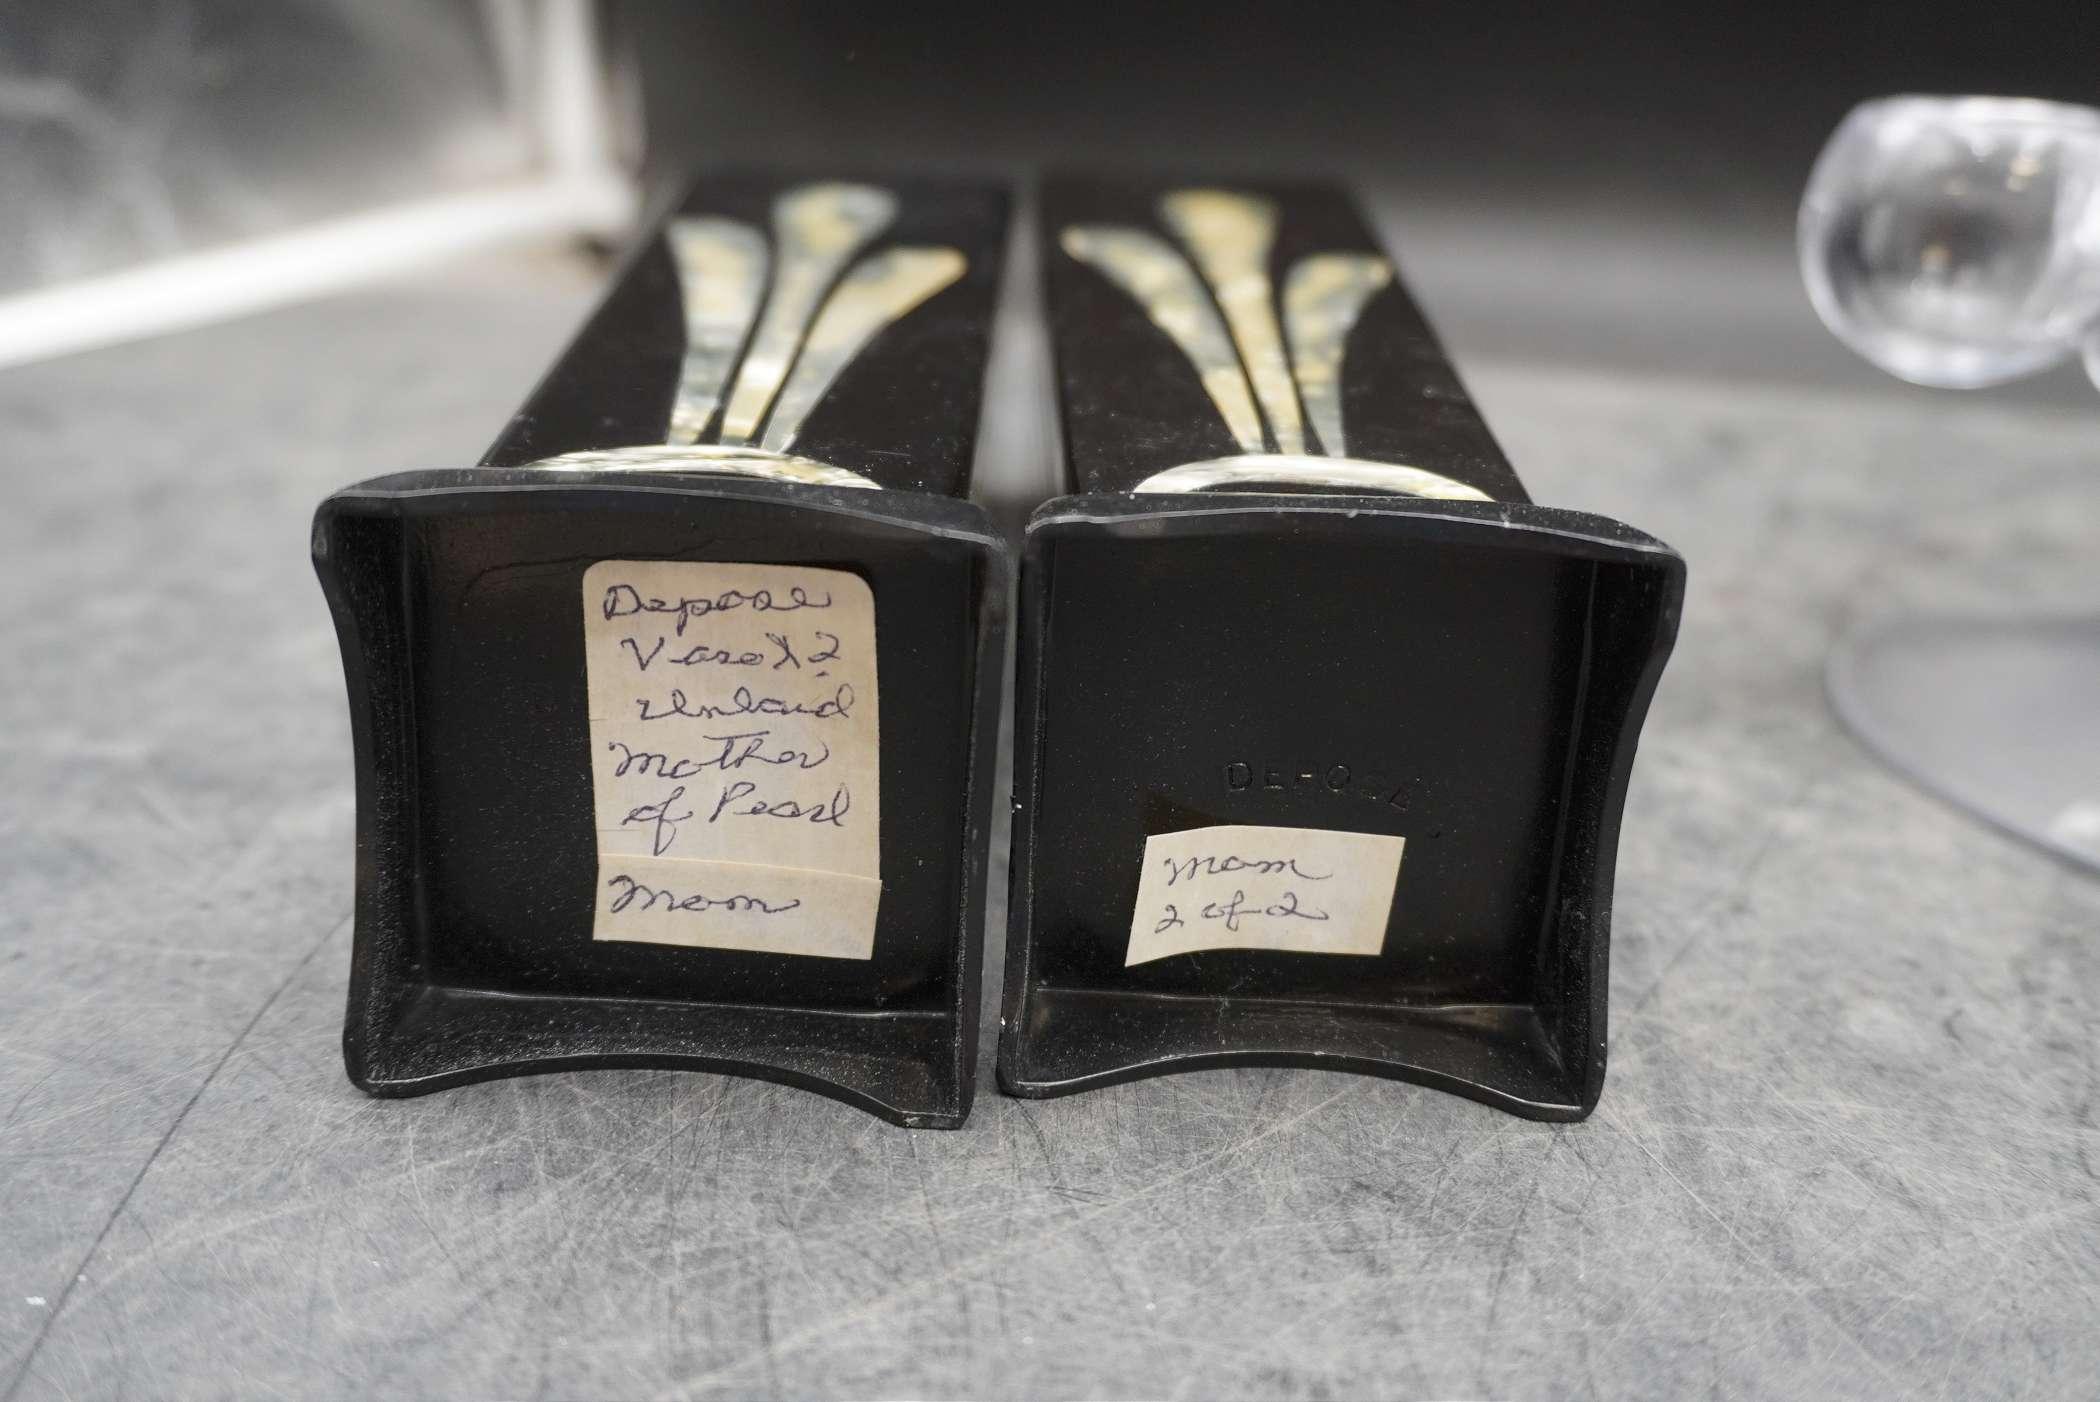 Depose
Vase X 2
Inlaid
Mother
of Pearl
Mom
DEPOSE
Mom
2 of 2